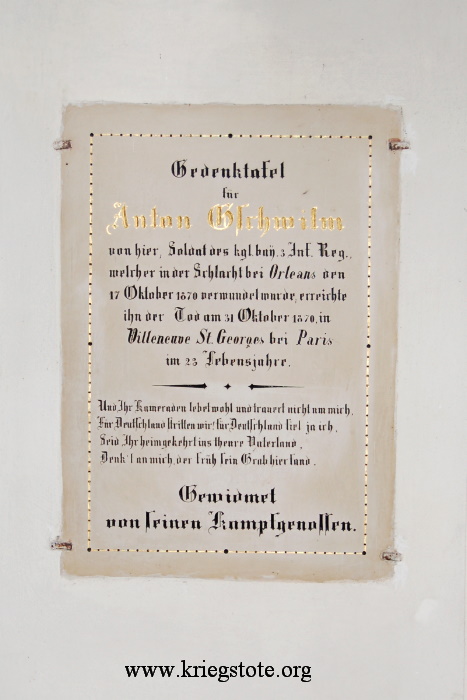 Gedenktafel
für
Anton Gschwilm
von hier, Soldat des kgl. bay. 3 Inf. Reg.,
welcher in der Schlacht bei Orleans den
17 Oktober 1870 verwundet wurde, erreichte
ihn der Tod am 31 Oktober 1870, in
Villeneuve St. Georges bei Paris
im 23 Lebensjahre.
Und Ihr Kameraden lebet wohl und trauert nicht um mich,
Für Deutschland stritten wir! für Deutschland fiel ja ich,
Seid Ihr heimgekehrt ins theure Vaterland,
Denk't an mich, der früh sein Grab hier fand.
Gewidmet
von seinen Kampfgenossen.
www.kriegstote.org